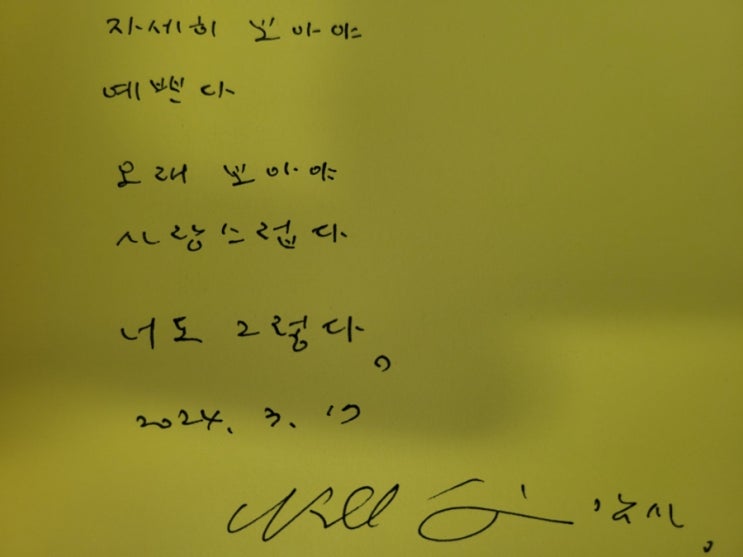 자세히 보아야
예쁘다
오래 보아야
사랑스럽다
너도 그렇다.
2024. 3. 17